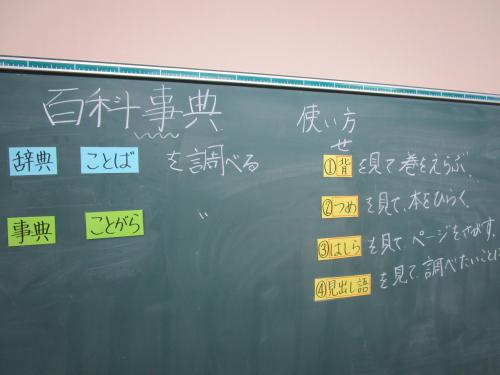 百科事典
辞典 ことば を調べる
事典 ことがら 〃
使い方
せ
①背を見て巻をえらぶ。
②つめを見て、本をひらく。
③はしらを見て、ページをさがす。
④見出し語を見て、調べたいことに